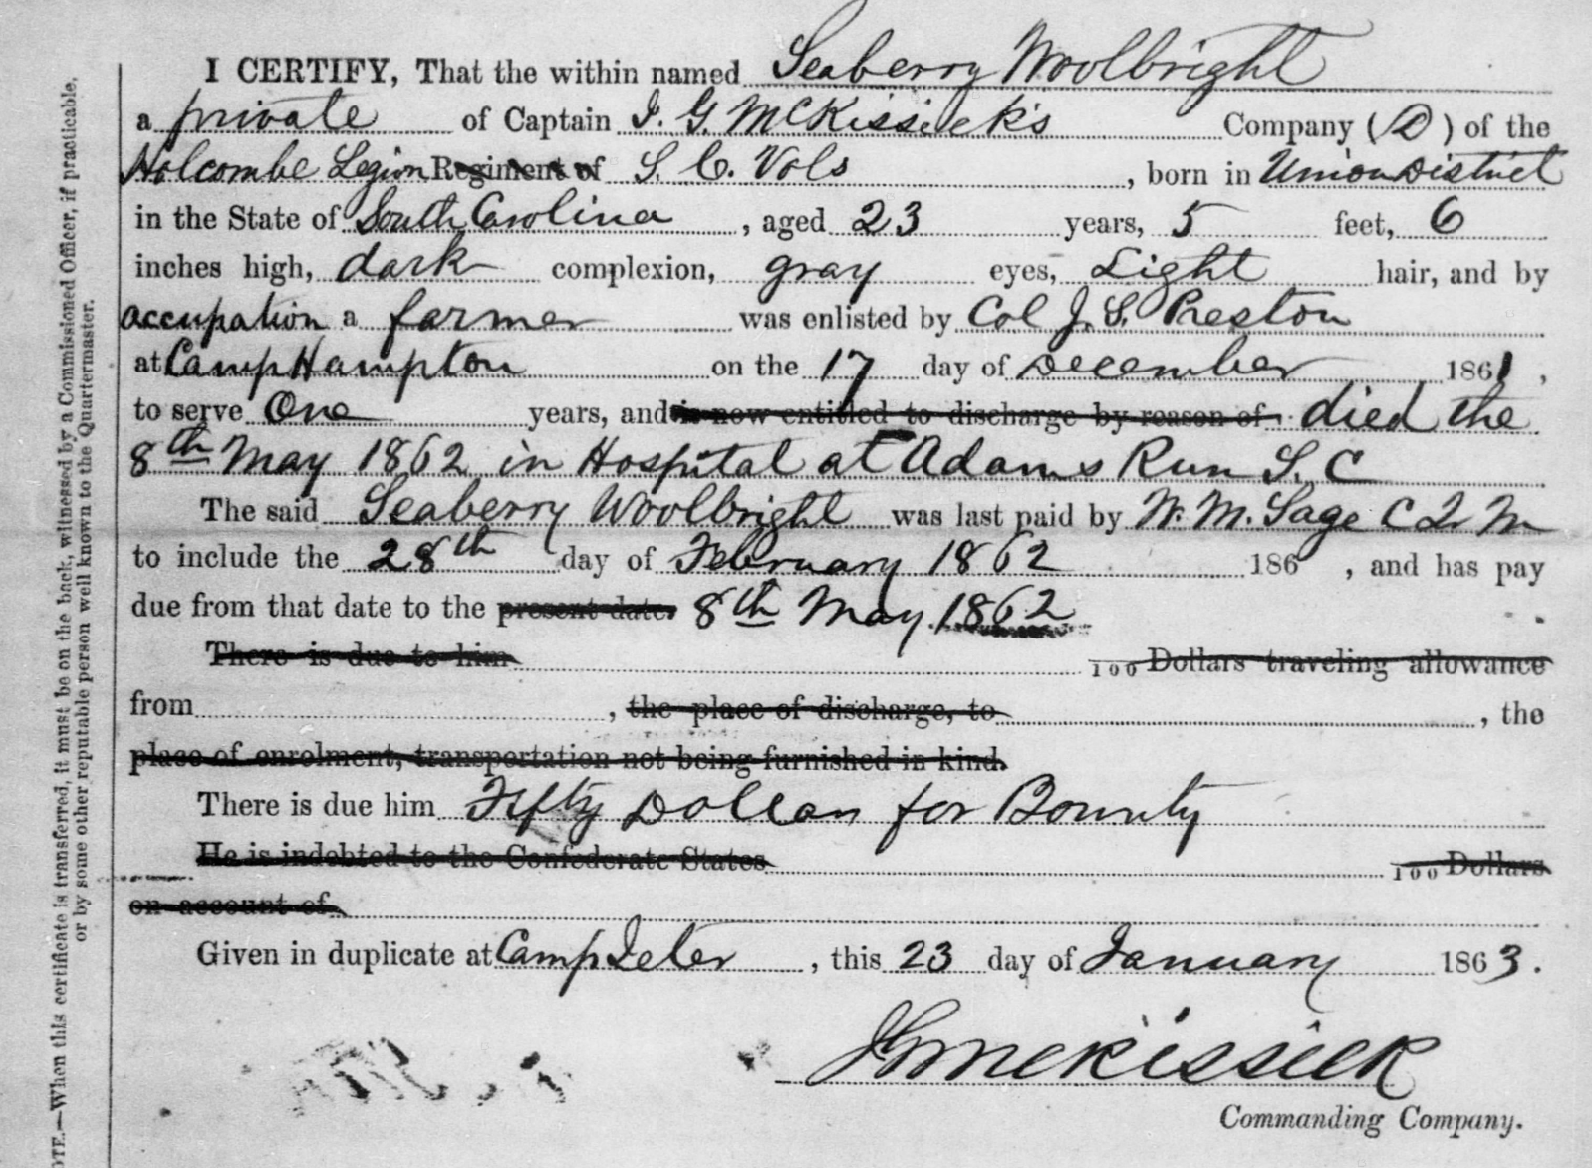 I CERTIFY, That the within named Seaberry Woolbright
a private of Captain J. G. McKissick's Company (D) of the
Holcombe Legion Regiment of S. C. Vols, born in Union District
in the State of South Carolina, aged 23 years, 5 feet, 6
inches high, dark complexion, gray eyes, Light hair, and by
occupation a farmer was enlisted by Col J. S. Preston
at Camp Hampton on the 17 day of December 1861,
to serve One years, and is now entitled to discharge by reason of died the
8th May 1862 in Hospital at Adams Run S. C
The said Seaberry Woolbright was last paid by W. M. Sage C Q M
to include the 28th day of February 1862 186 , and has pay
due from that date to the present date. 8th May 1862
There is due to him 100 Dollars traveling allowance
from , the place of discharge, to , the
place of enrolment, transportation not being furnished in kind.
There is due him Fifty Dollars for Bounty
He is indebted to the Confederate States 100 Dollars
on account of
Given in duplicate at Camp Jeter, this 23 day of January 1863.
J G McKissick
Commanding Company.
OTE.—When this certificate is transferred, it must be on the back, witnessed by a Commissioned Officer, if practicable,
or by some other reputable person well known to the Quartermaster.